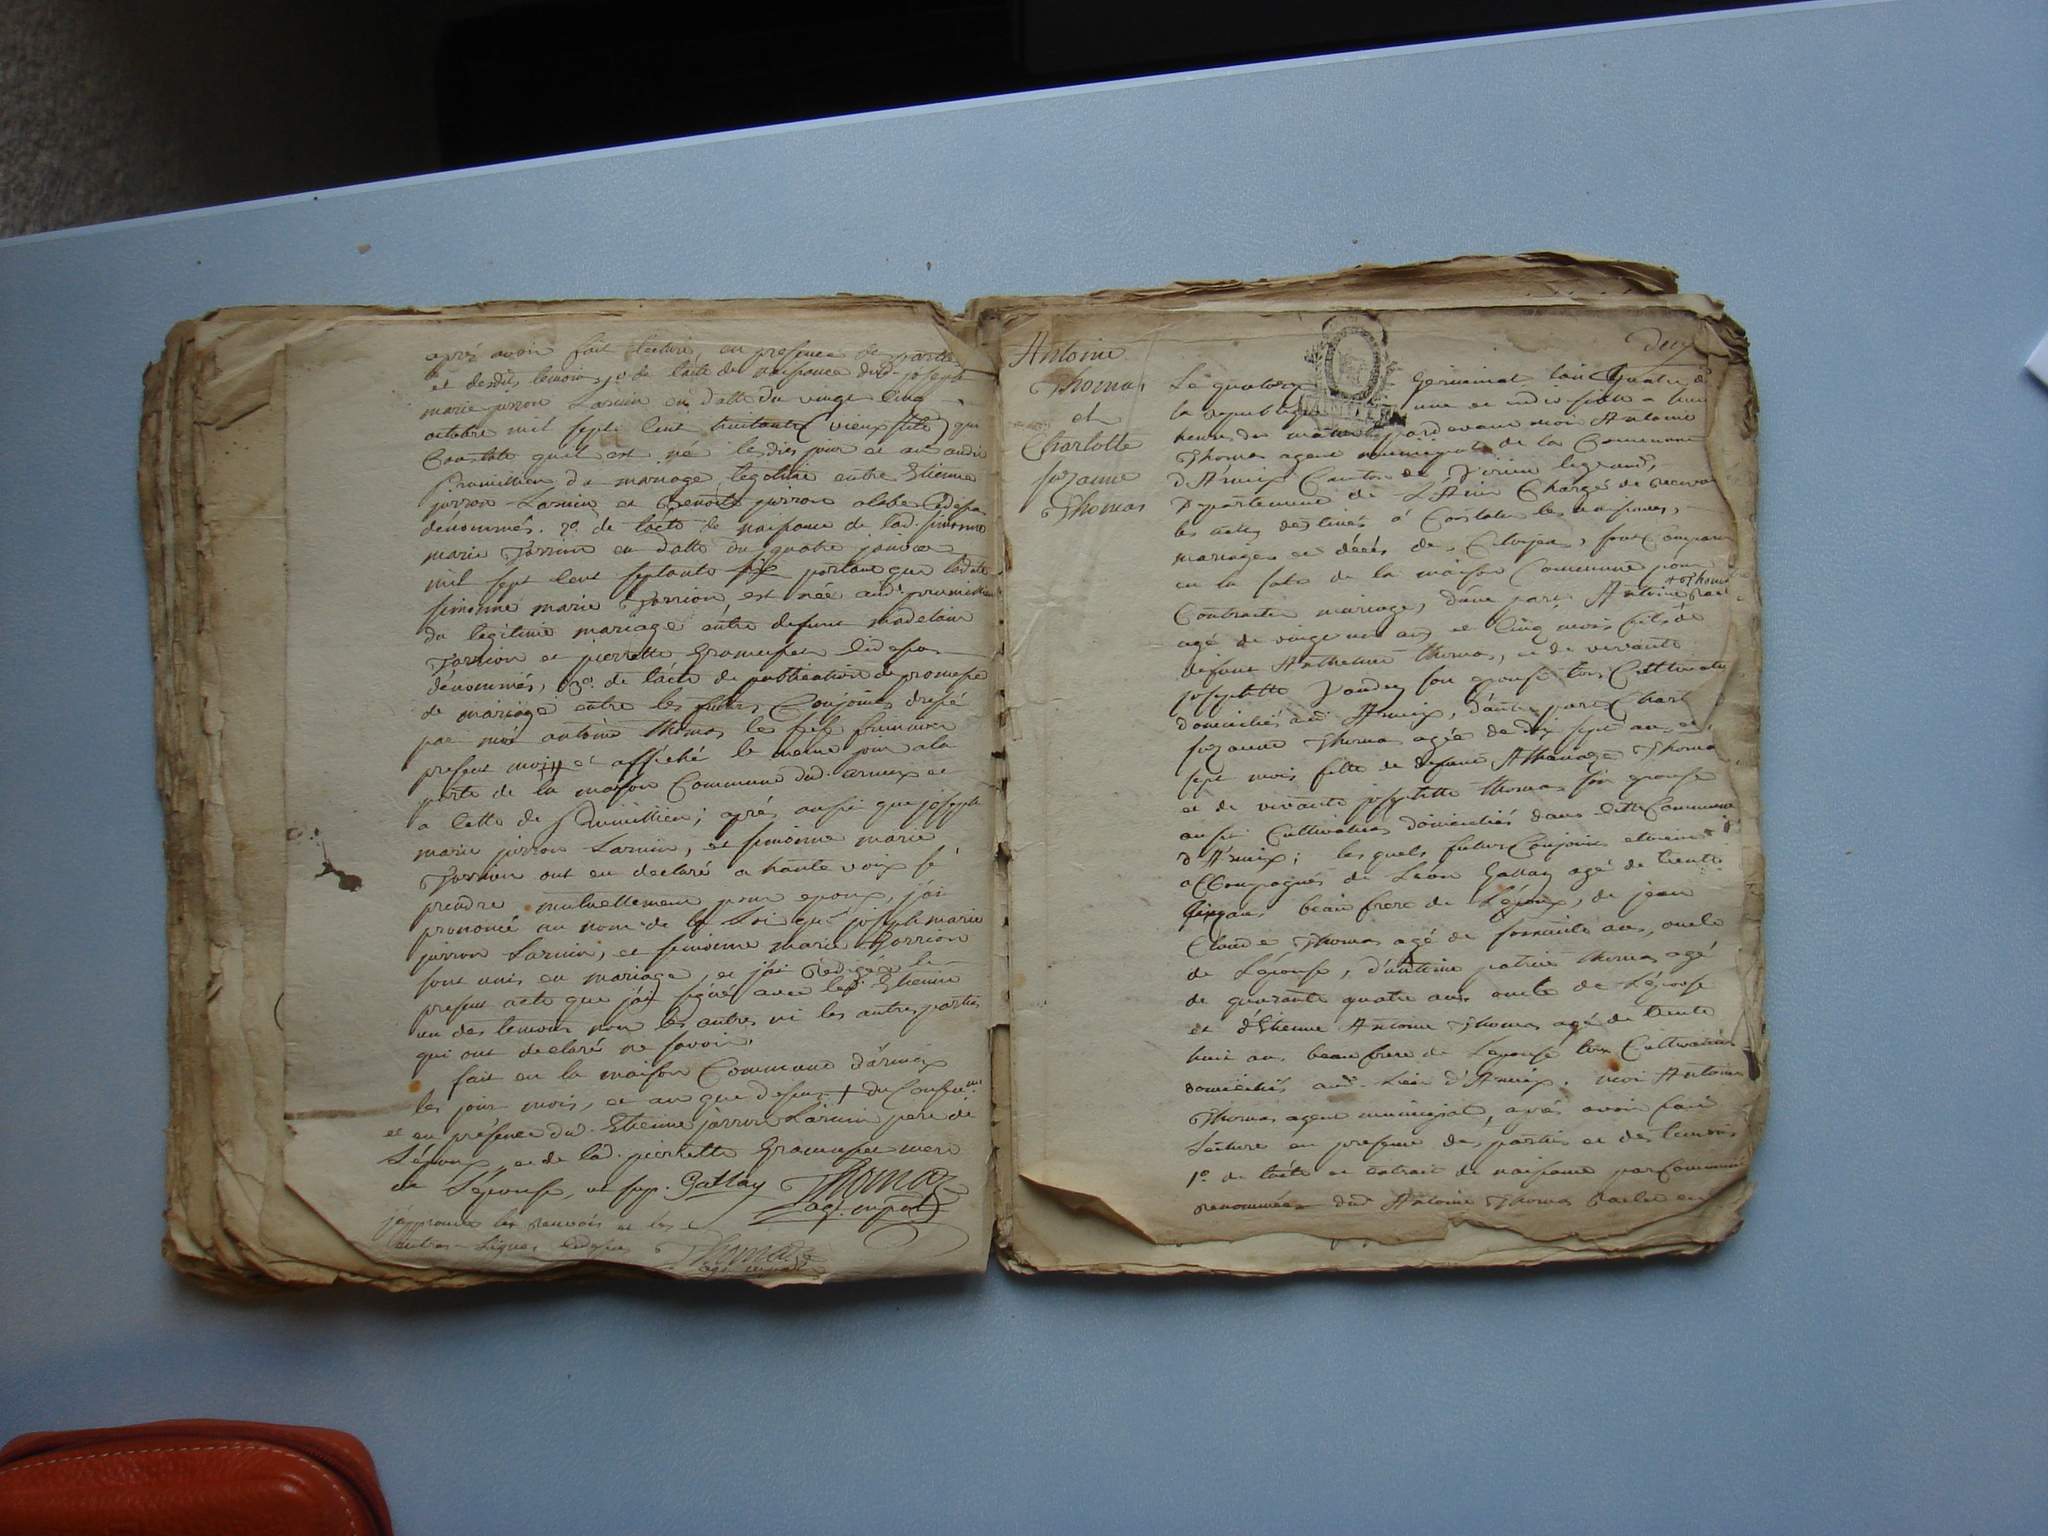 après avoir fait lecture en presence de partie
et desdits temoins, 1º de l'acte de naissance dud. joseph
marie jurron Larmin en datte du vingt cinq
octobre mil sept cent huitante (vieux stile) qui
Constate quil est né lesdits jour et an audit
de mariage legitime entre Etienne
jurron Larmin et Benoite jurron
dénommés. 2º de l'acte de naissance de lad. simonne
marie en datte du quatre janvier
mil sept cent septante six portant que ladite
simonne marie est née aud.
du legitime mariage entre defunt
et pierrette
dénommés, 3º de l'acte de publication de promesse
de mariage entre les futurs Conjoints dressé
par moi antoine thomas le
present mois et affiché le meme jour a la
porte de la maison Commune dud. armix et
a celle de ; après aussi que joseph
marie jurron Larmin, et simonne marie
ont eu declaré a haute voix se
prendre mutuellement pour epoux, j'ai
prononcé au nom de la Loi que joseph marie
jurron Larmin, et simonne marie
sont unis en mariage, et j'ai redigé le
present acte que j'ai signé avec led. Etienne
un des temoins non les autres ni les autres parties
qui ont declaré ne savoir.
fait en la maison Commune d'armix
les jour mois, et an que dessus +
et en présence dud. Etienne jurron Larmin pere de
L'époux, et de lad. pierrette mere
de L'épouse, Gallay Thomas
agt. mpal
j'approuve les renvois et les
lignes cidessus Thomas
agt. mpal
deux
Antoine
Thomas
et
Charlotte
suzanne
Thomas
Le quatorze germinal lan quatre de
la republique une et indivisible a
heures du matin pardevant moi Antoine
Thomas agent municipal de la Commune
D'Armix Canton de Virieu legrand,
Departement de L'Ain Chargé de recevoir
les actes destinés à Constater les naissances,
mariages et décés des Citoyens, sont Comparu
en la sale de la maison Commune pour
Contracter mariage, d'une part Antoine Thomas
agé de vingt un ans et cinq mois fils de
defunt Anthelme thomas, et de vivante
josephette son epouse tous Cultivateurs
domiciliés aud. Armix, d'autre part Charl
suzanne Thomas agée de dix sept ans et
sept mois fille de defunt Athanaze Thomas
et de vivante josephette thomas son epouse
aussi Cultivateurs domiciliés dans cette Commune
D'Armix; lesquels futurs Conjoints etoient
accompagnés de Léon Gallay agé de trente
cinq ans, beau frere de L'époux, de jean
Claude Thomas agé de soixante ans, oncle
de L'épouse, d'antoine patrice thomas agé
de quarante quatre ans oncle de L'épouse
et d'Etienne Antoine Thomas agé de trente
huit ans beau frere de L'epouse tous Cultivateurs
domiciliés aud. Lieu d'Armix. moi Antoine
Thomas agent municipal, après avoir fait
Lecture en presence des parties et des temoins
1º de l'acte ou extrait de naissance par Commune
renommée dud. Antoine Thomas en